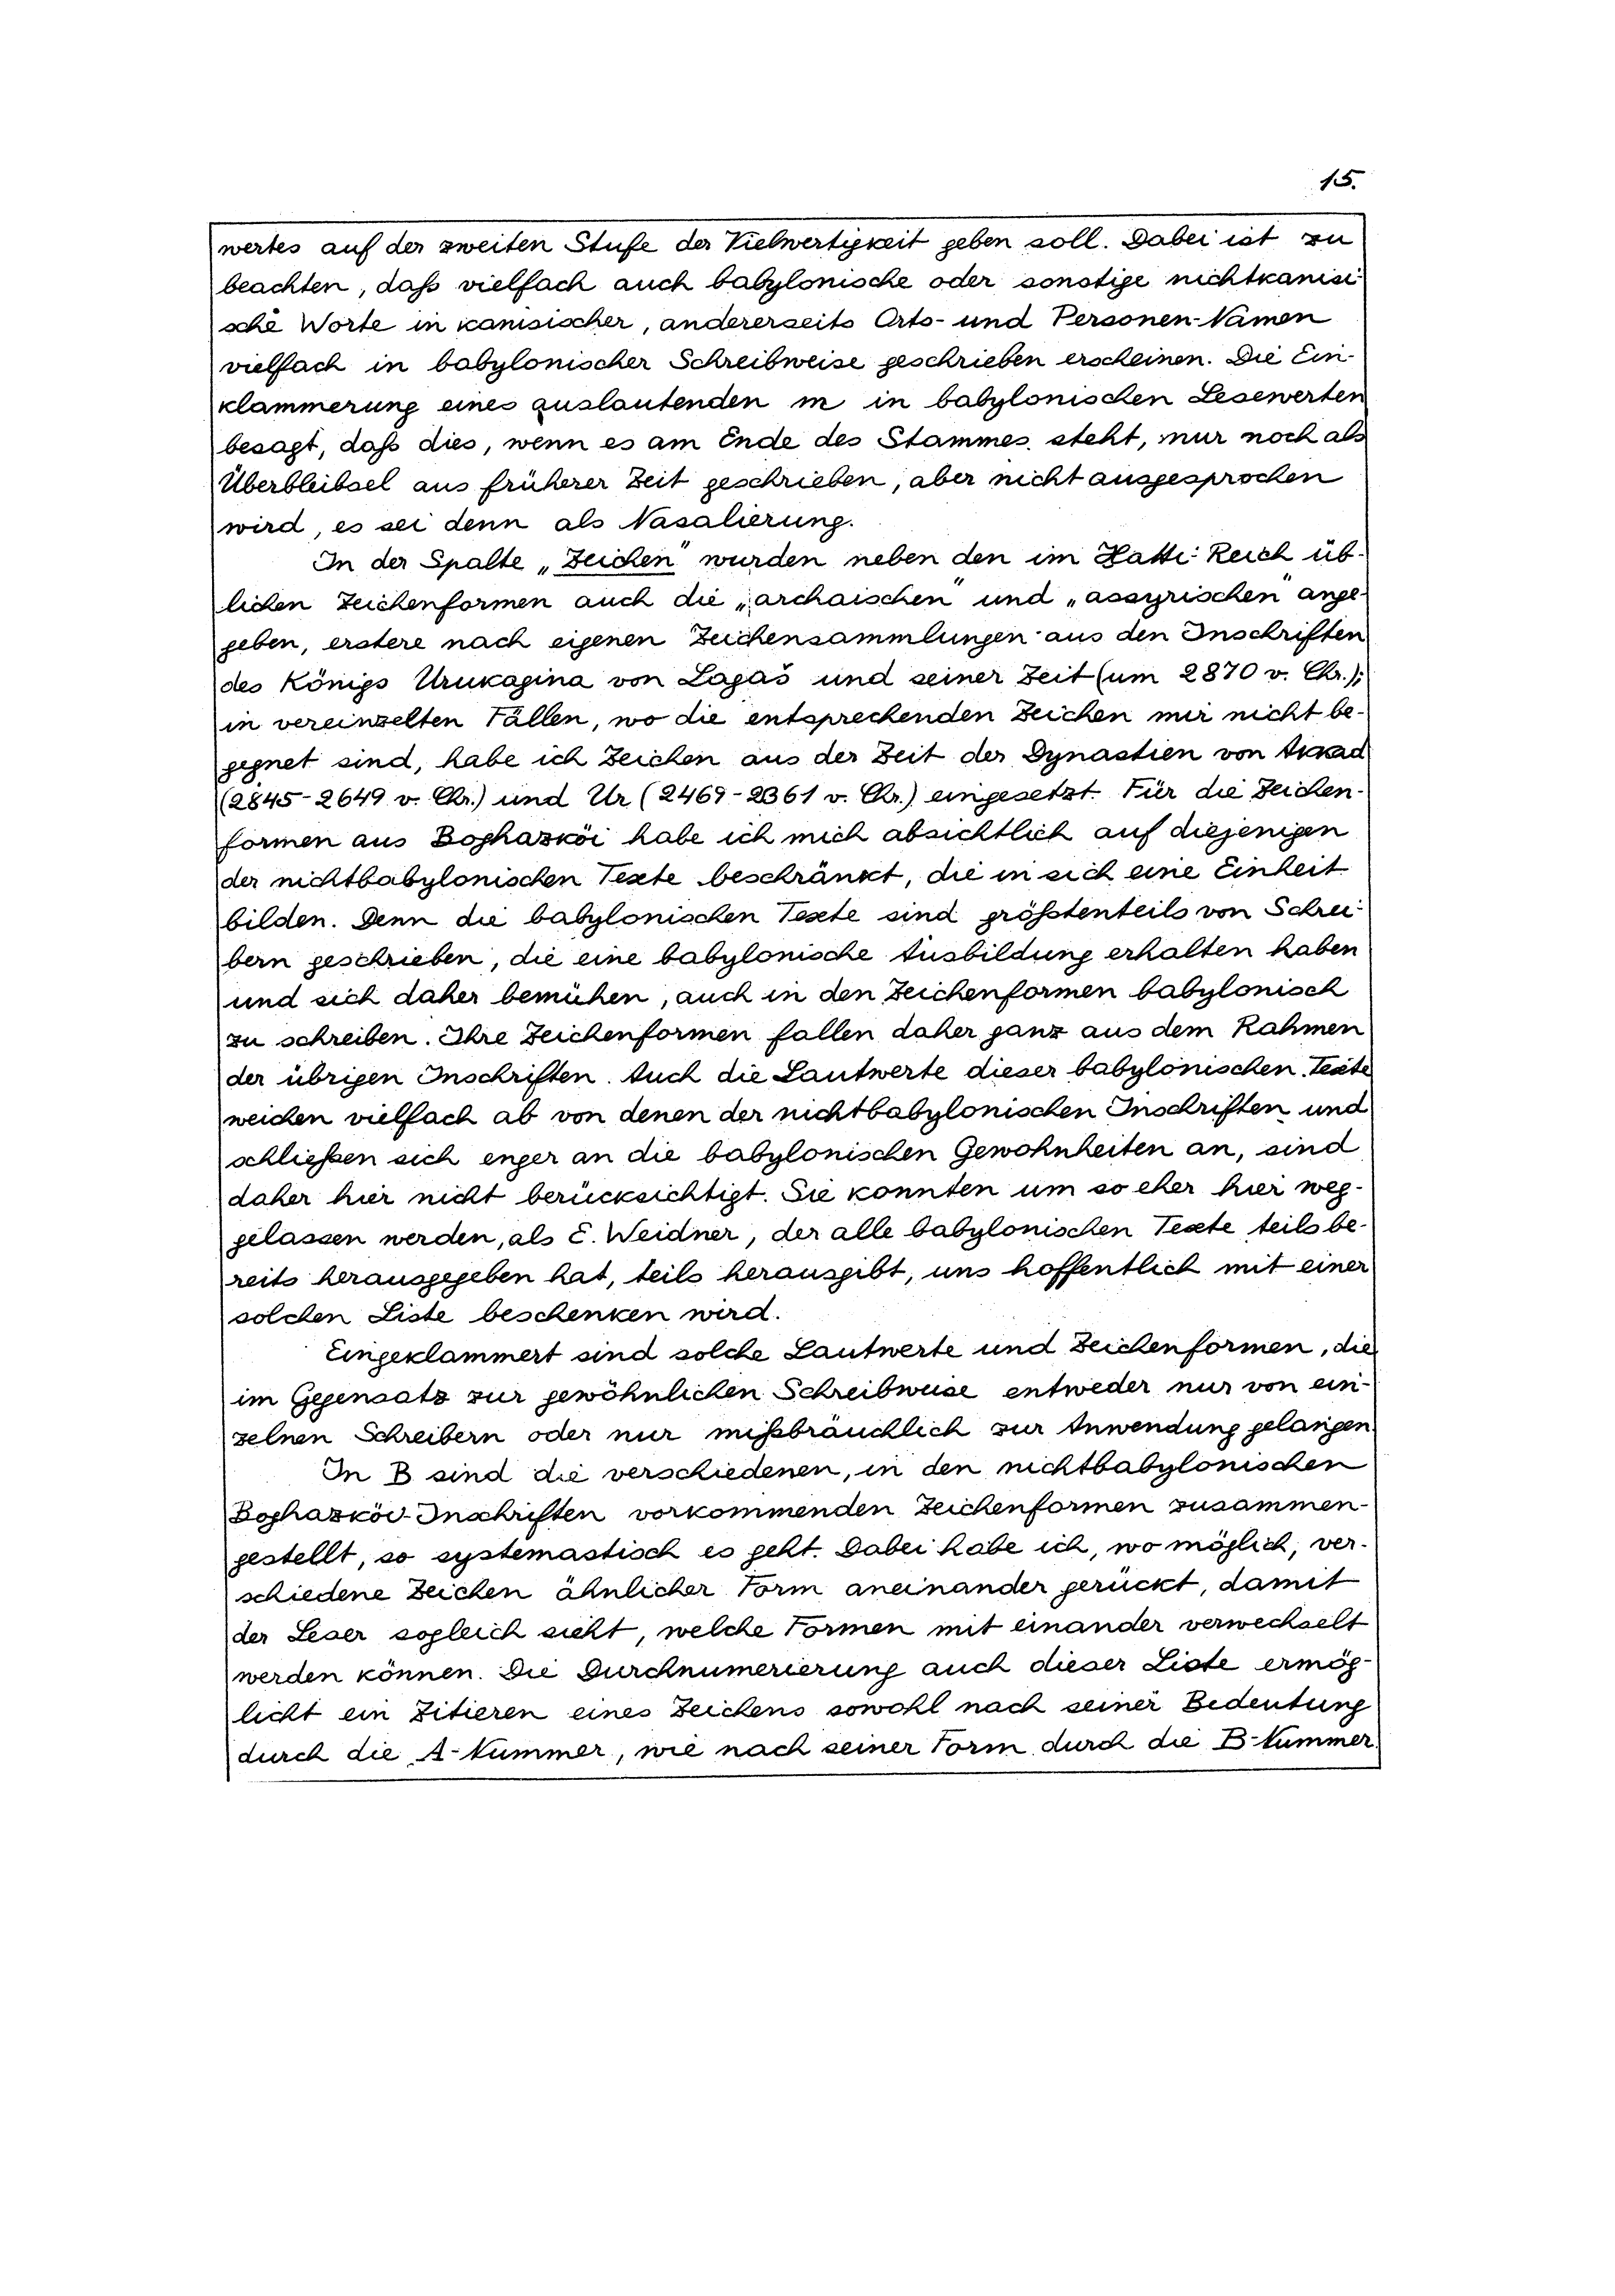 15.
wertes auf der zweiten Stufe der Vielwertigkeit geben soll. Dabei ist zu
beachten, daß vielfach auch babylonische oder sonstige nichtkanisi-
sche Worte in kanisischer, andererseits Orts- und Personen-Namen
vielfach in babylonischer Schreibweise geschrieben erscheinen. Die Ein-
klammerung eines auslautenden m in babylonischen Lesewerten
besagt, daß dies, wenn es am Ende des Stammes steht, nur noch als
Überbleibsel aus früherer Zeit geschrieben, aber nicht ausgesprochen
wird, es sei denn als Nasalierung.
In der Spalte „Zeichen" wurden neben den im Hatti-Reich üb-
lichen Zeichenformen auch die „archaischen" und „assyrischen" ange-
geben, erstere nach eigenen Zeichensammlungen aus den Inschriften
des Königs Urukagina von Lagaš und seiner Zeit (um 2870 v. Chr.);
in vereinzelten Fällen, wo die entsprechenden Zeichen mir nicht be-
gegnet sind, habe ich Zeichen aus der Zeit der Dynastien von Akkad
(2845-2649 v. Chr.) und Ur (2469-2361 v. Chr.) eingesetzt. Für die Zeichen-
formen aus Boghazköi habe ich mich absichtlich auf diejenigen
der nichtbabylonischen Texte beschränkt, die in sich eine Einheit
bilden. Denn die babylonischen Texte sind größtenteils von Schrei-
bern geschrieben, die eine babylonische Ausbildung erhalten haben
und sich daher bemühen, auch in den Zeichenformen babylonisch
zu schreiben. Ihre Zeichenformen fallen daher ganz aus dem Rahmen
der übrigen Inschriften. Auch die Lautwerte dieser babylonischen Texte
weichen vielfach ab von denen der nichtbabylonischen Inschriften und
schließen sich enger an die babylonischen Gewohnheiten an, sind
daher hier nicht berücksichtigt. Sie konnten um so eher hier weg-
gelassen werden, als E. Weidner, der alle babylonischen Texte teils be-
reits herausgegeben hat, teils herausgibt, uns hoffentlich mit einer
solchen Liste beschenken wird.
Eingeklammert sind solche Lautwerte und Zeichenformen, die
im Gegensatz zur gewöhnlichen Schreibweise entweder nur von ein-
zelnen Schreibern oder nur mißbräuchlich zur Anwendung gelangen.
In B sind die verschiedenen, in den nichtbabylonischen
Boghazköi-Inschriften vorkommenden Zeichenformen zusammen-
gestellt, so systemastisch es geht. Dabei habe ich, wo möglich, ver-
schiedene Zeichen ähnlicher Form aneinander gerückt, damit
der Leser sogleich sieht, welche Formen mit einander verwechselt
werden können. Die Durchnumerierung auch dieser Liste ermög-
licht ein Zitieren eines Zeichens sowohl nach seiner Bedeutung
durch die A-Nummer, wie nach seiner Form durch die B-Nummer.